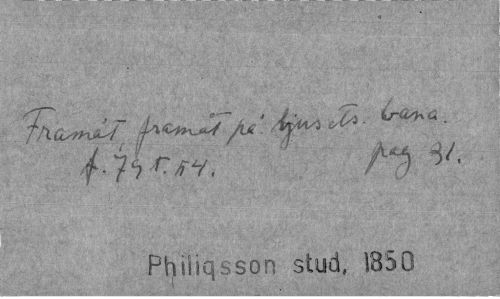 Framåt, framåt på ljusets. bana.
f. 79 t. 54. pag 31.
Philiqsson stud, 1850